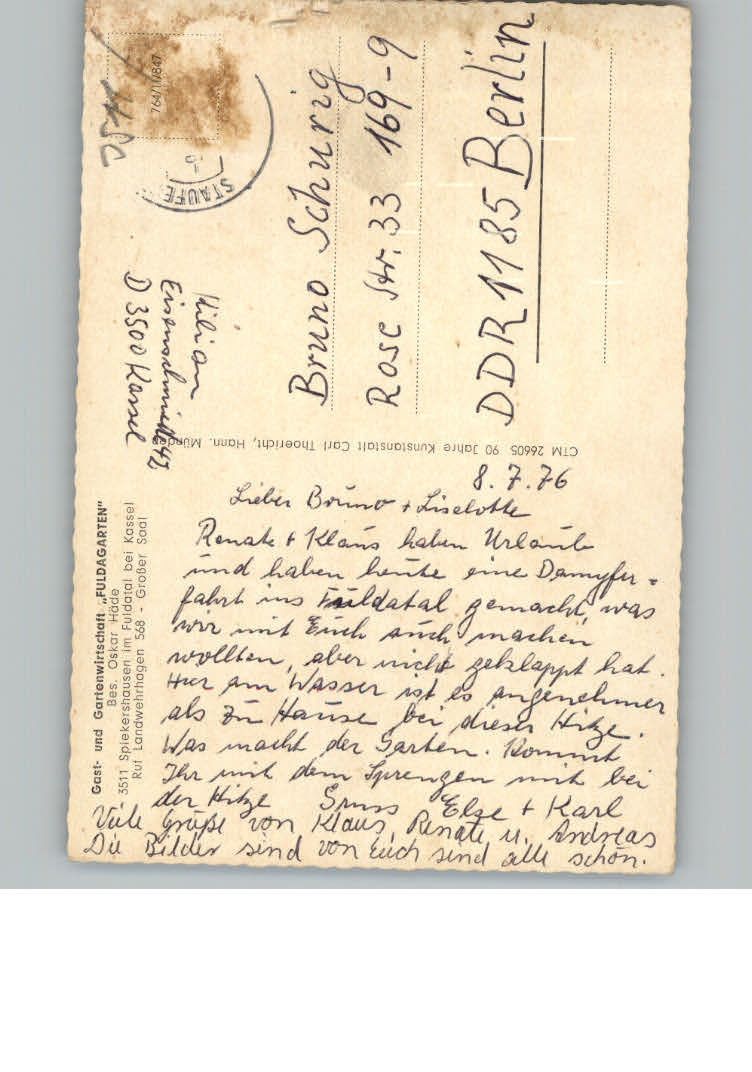 Gast- und Gartenwirtschaft „FULDAGARTEN"
Bes. Oskar Häde
3511 Spiekershausen im Fuldatal bei Kassel
Ruf Landwehrhagen 568 - Großer Saal
8.7.76
Lieber Bruno + Liselotte
Renate + Klaus haben Urlaub
und haben heute eine Dampfer =
fahrt ins Fuldatal gemacht, was
wir mit Euch auch machen
wollten, aber nicht geklappt hat.
Hier am Wasser ist es angenehmer
als zu Hause bei dieser Hitze.
Was macht der Garten. Kommt
Ihr mit dem Sprengen mit bei
der Hitze Gruss Else + Karl
Viele Grüße von Klaus, Renate u. Andreas
Die Bilder sind von Euch sind alle schön.
CTM 26605 90 Jahre Kunstanstalt Carl Thoericht, Hann. Münden
Kilian
Eisenschmiede 42
D 3500 Kassel
764/11/847
STAUFE
Bruno Schurig
Rose Str. 33 169-9
DDR 1185 Berlin